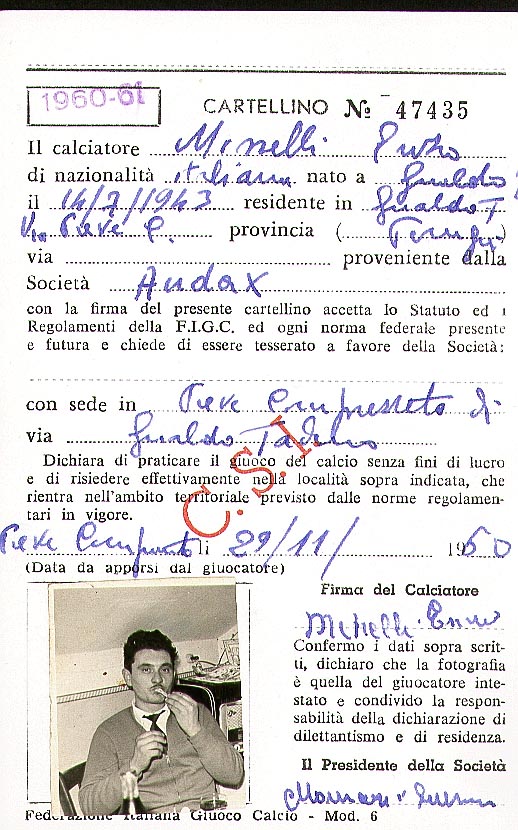 1960-61
CARTELLINO Nº 47435
Il calciatore Minelli Enzo
di nazionalità italiana nato a Gualdo
il 14/7/1943 residente in Gualdo T
Via Pieve C. provincia (Perugia)
via proveniente dalla
Società Audax
con la firma del presente cartellino accetta lo Statuto ed i
Regolamenti della F.I.G.C. ed ogni norma federale presente
e futura e chiede di essere tesserato a favore della Società:
con sede in Pieve Compresseto di
via Gualdo Tadino
Dichiara di praticare il giuoco del calcio senza fini di lucro
e di risiedere effettivamente nella località sopra indicata, che
rientra nell'ambito territoriale previsto dalle norme regolamen-
tari in vigore.
C.S.I.
Pieve li 29/11/ 1960
(Data da apporsi dal giuocatore)
Firma del Calciatore
Minelli Enzo
Confermo i dati sopra scrit-
ti, dichiaro che la fotografia
è quella del giuocatore inte-
stato e condivido la respon-
sabilità della dichiarazione di
dilettantismo e di residenza.
Il Presidente della Società
Federazione Italiana Giuoco Calcio - Mod. 6